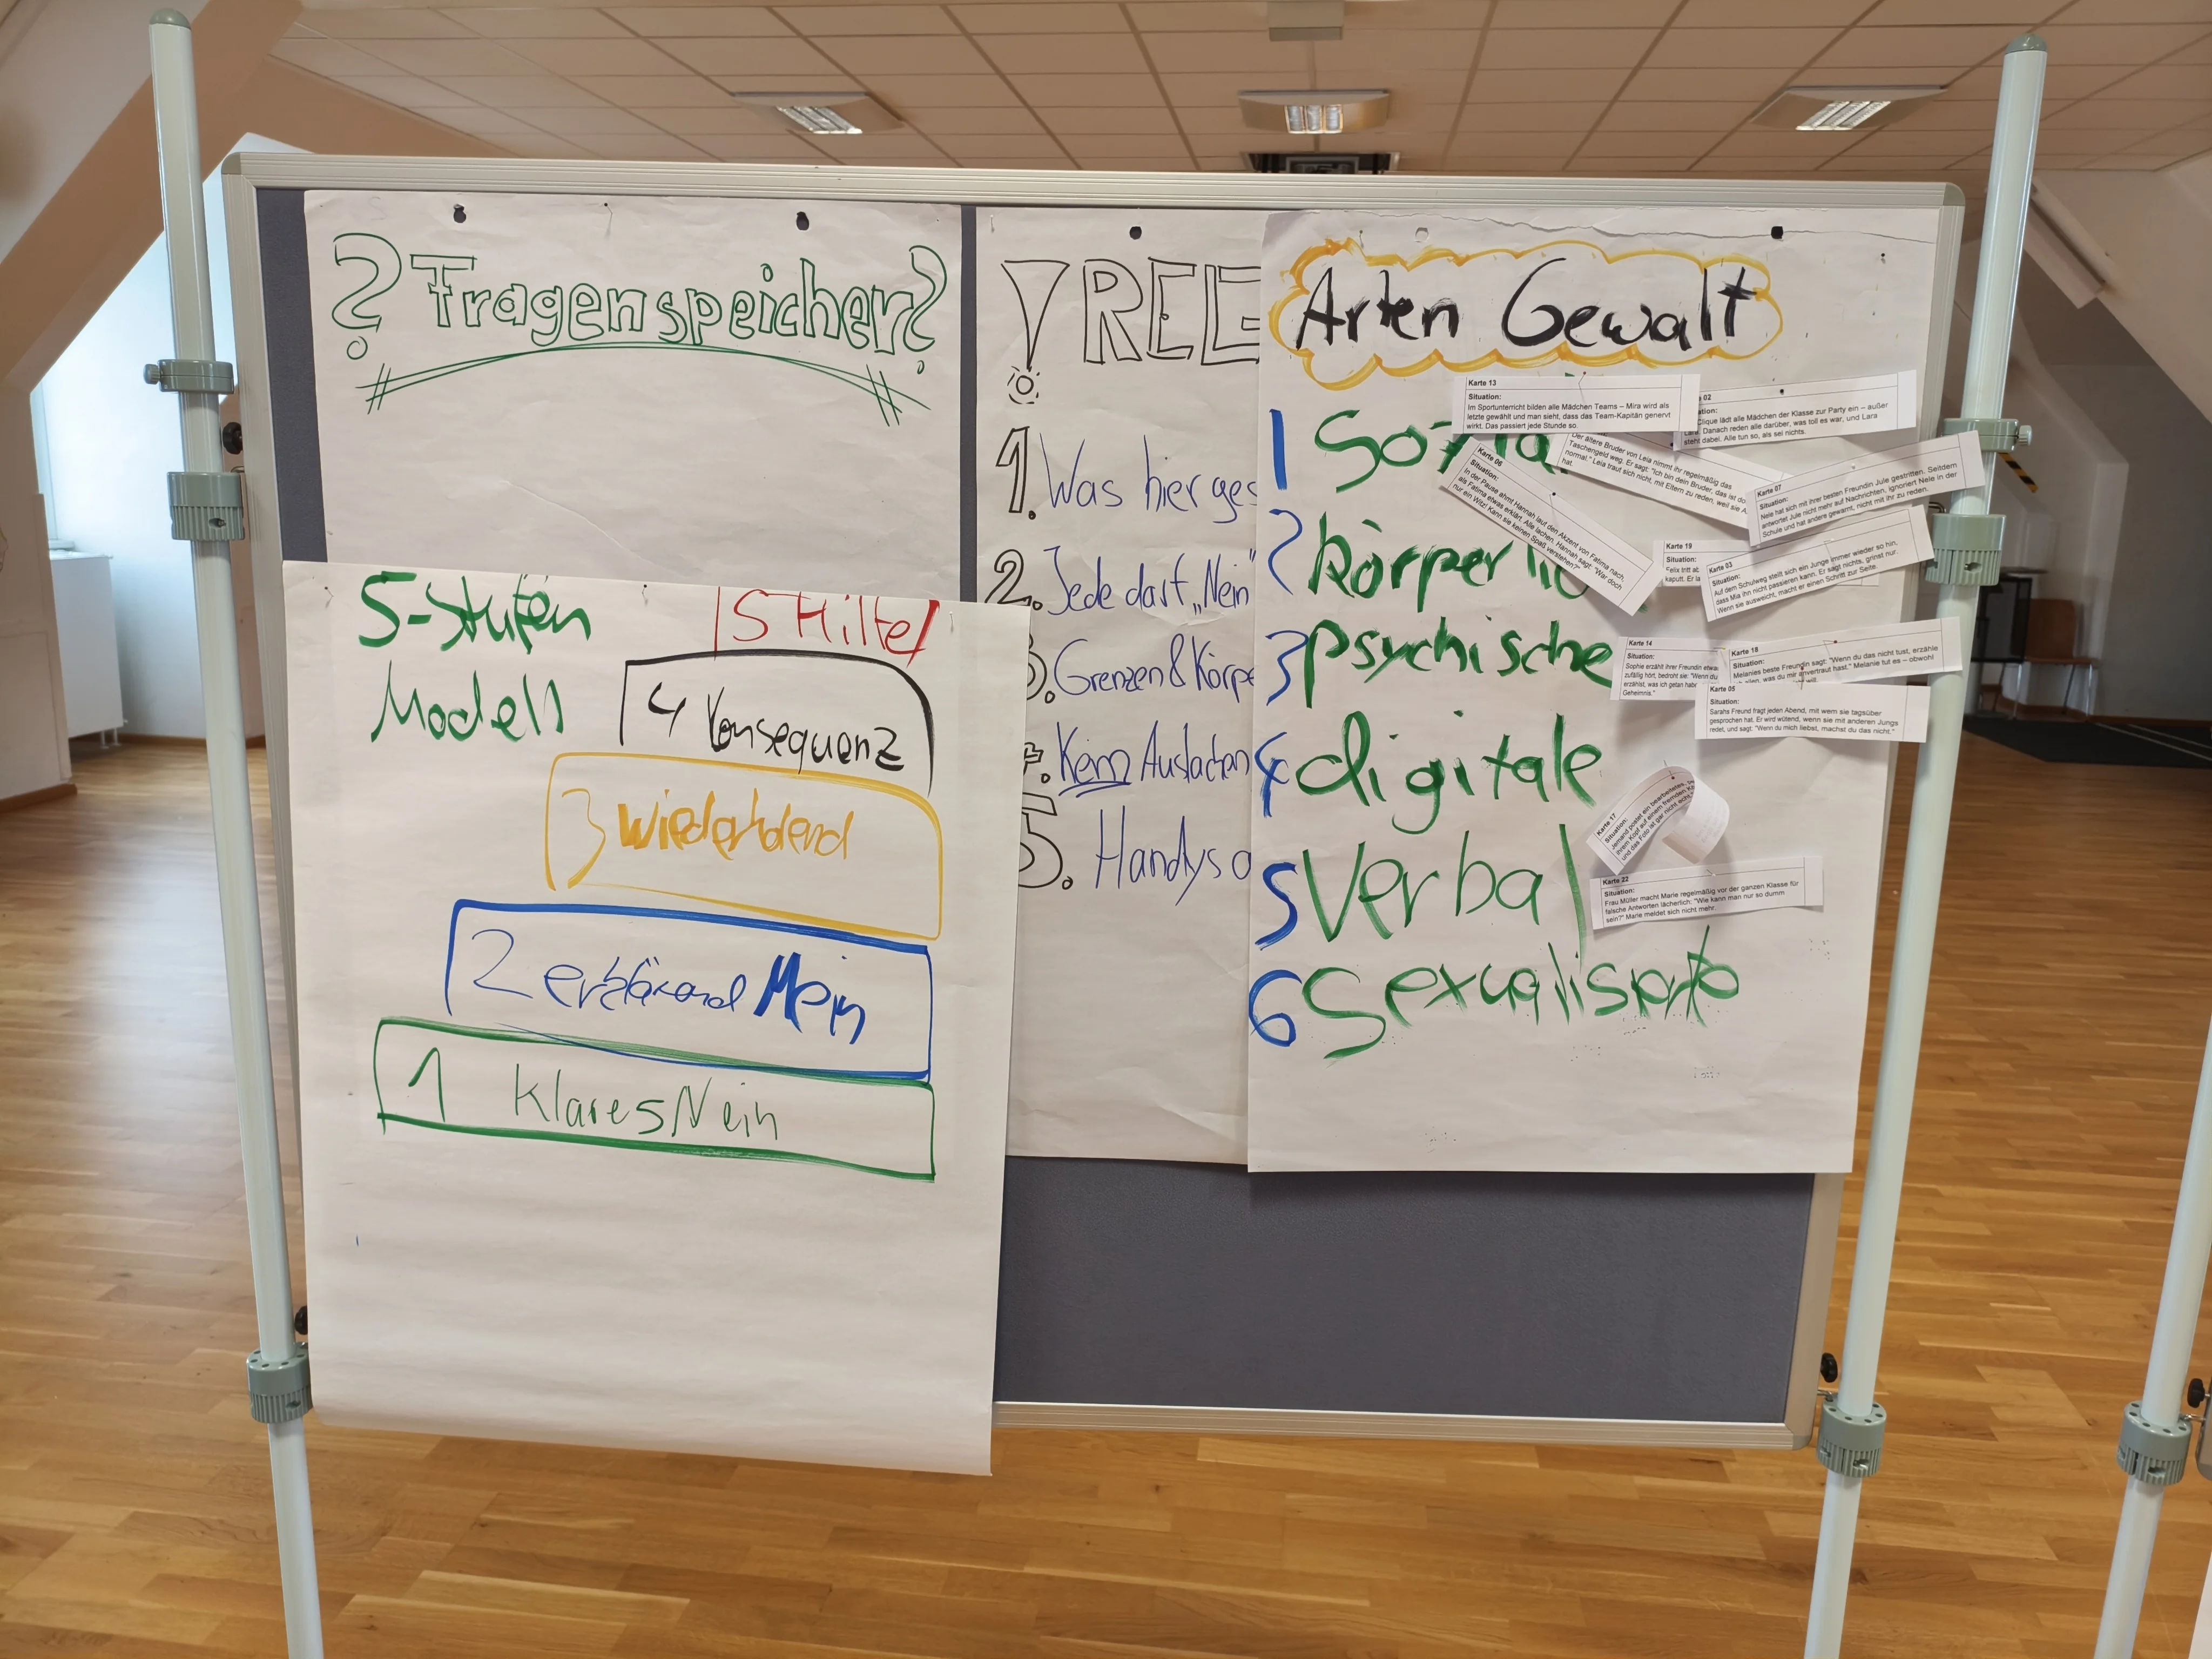 ? Fragenspeicher?
5-Stufen
Modell
5 Hilfe
4 Konsequenz
3
2 Nein
1 Klares Nein
! REG
1. Was hier ges
2. Jede darf „Nein"
3. Grenzen & Körpe
4. Kein Auslachen
5. Handys a
Arten Gewalt
1 Sozia
2 körperlic
3 psychische
4 digitale
5 Verbal
6 Sexualisierte
Karte 13
Situation:
Im Sportunterricht bilden alle Mädchen Teams – Mira wird als
letzte gewählt und man sieht, dass das Team-Kapitän genervt
wirkt. Das passiert jede Stunde so.
02
tion:
Clique lädt alle Mädchen der Klasse zur Party ein – außer
Lara. Danach reden alle darüber, was toll es war, und Lara
steht dabei. Alle tun so, als sei nichts.
Der ältere Bruder von Leia nimmt ihr regelmäßig das
Taschengeld weg. Er sagt: "Ich bin dein Bruder, das ist do
normal." Leia traut sich nicht, mit Eltern zu reden, weil sie A
hat.
Karte 06
Situation:
In der Pause ahmt Hannah laut den Akzent von Fatima nach,
als Fatima etwas erklärt. Alle lachen. Hannah sagt: "War doch
nur ein Witz! Kann sie keinen Spaß verstehen?"
Karte 07
Situation:
Nele hat sich mit ihrer besten Freundin Jule gestritten. Seitdem
antwortet Jule nicht mehr auf Nachrichten, ignoriert Nele in der
Schule und hat andere gewarnt, nicht mit ihr zu reden.
Karte 19
Situation:
Felix tritt ab
kaputt. Er la
Karte 03
Situation:
Auf dem Schulweg stellt sich ein Junge immer wieder so hin,
dass Mia ihn nicht passieren kann. Er sagt nichts, grinst nur.
Wenn sie ausweicht, macht er einen Schritt zur Seite.
Karte 14
Situation:
Sophie erzählt ihrer Freundin etwa
zufällig hört, bedroht sie: "Wenn du
erzählst, was ich getan habe
Geheimnis."
Karte 18
Situation:
Melanies beste Freundin sagt: "Wenn du das nicht tust, erzähle
allen, was du mir anvertraut hast." Melanie tut es – obwohl
will.
Karte 05
Situation:
Sarahs Freund fragt jeden Abend, mit wem sie tagsüber
gesprochen hat. Er wird wütend, wenn sie mit anderen Jungs
redet, und sagt: "Wenn du mich liebst, machst du das nicht."
Karte 17
Situation:
Jemand postet ein bearbeitetes
ihrem Kopf auf einem fremden Kö
und das Foto ist gar nicht echt."
Karte 22
Situation:
Frau Müller macht Marie regelmäßig vor der ganzen Klasse für
falsche Antworten lächerlich: "Wie kann man nur so dumm
sein?" Marie meldet sich nicht mehr.